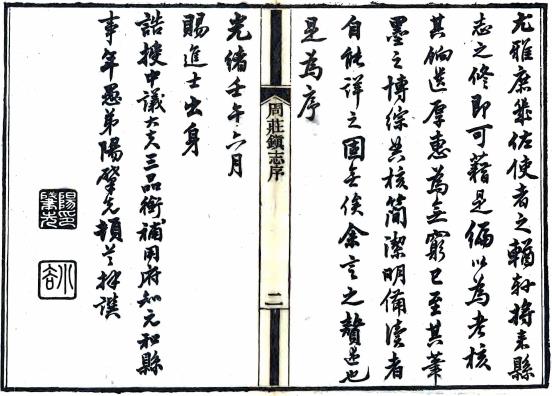 尤雅庶幾佐使者之輶軒將來縣
志之修即可藉是編以為考核
其餉遺厚惠為無窮已至其筆
墨之博綜典核簡潔明備讀者
自能詳之固無俟余言之贅述也
是為序
光緒壬午六月
賜進士出身
誥授中議大夫三品銜補用府知元和縣
事年愚弟陽肇先頓首拜譔
陽肇先印
周莊鎮志序
二